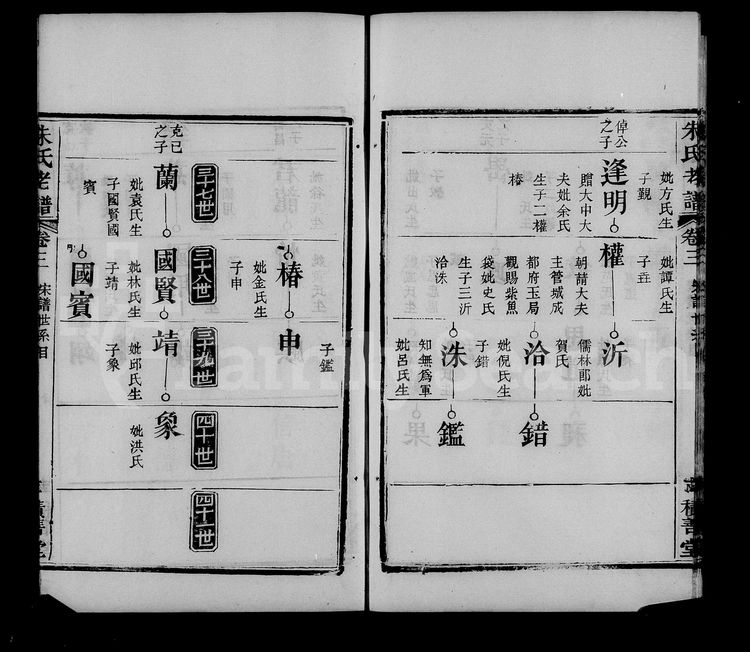 朱氏老譜
卷三
宋譜世系
積善堂
妣方氏生
子覲
倬公
之子
逢明
贈大中大
夫妣余氏
生子二權
椿
妣譚氏生
子垚
權
朝請大夫
主管城成
都府玉局
觀賜紫魚
袋妣史氏
生子三沂
洽洙
沂
儒林郎妣
賀氏
洽
妣倪氏生
子錯
洙
知無為軍
妣呂氏生
子鑑
錯
鑑
椿
妣金氏生
子申
申
三十七世
三十八世
三十九世
四十世
四十一世
克已
之子
蘭
妣袁氏生
子國賢國
賓
國賢
妣林氏生
子靖
靖
妣邱氏生
子象
象
妣洪氏
國賓
朱氏老譜
卷三
宋譜世系
積善堂